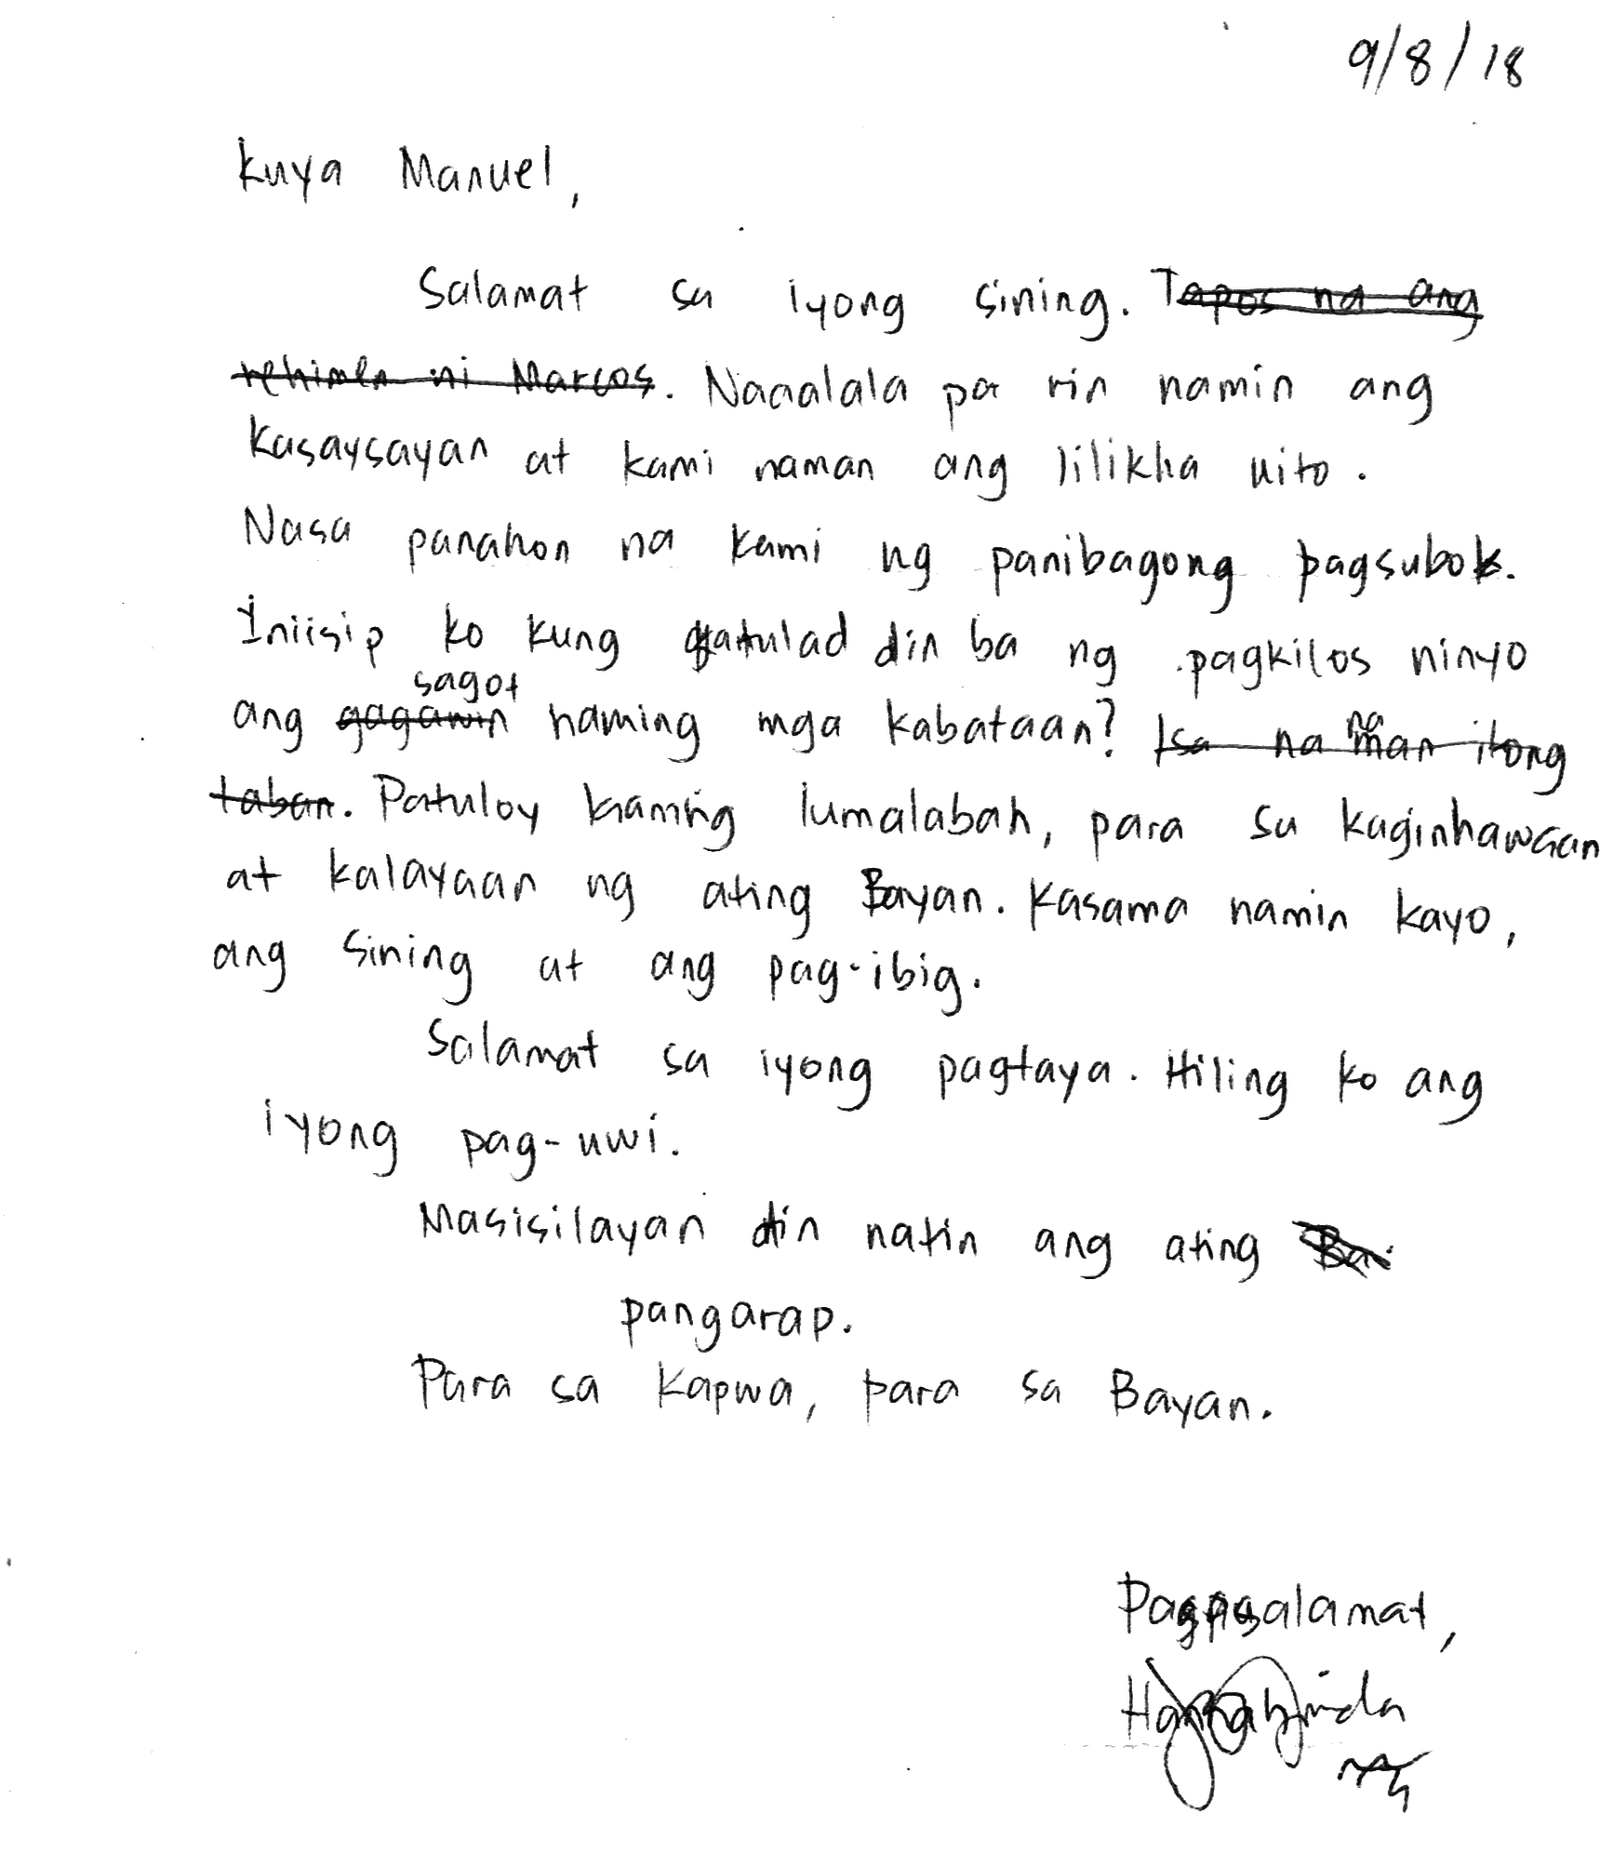 9/8/18
Kuya Manuel,
Salamat sa iyong sining. Tapos na ang
rehimen ni Marcos. Naaalala pa rin namin ang
kasaysayan at kami naman ang lilikha nito.
Nasa panahon na kami ng panibagong pagsubok.
Iniisip ko kung katulad din ba ng pagkilos ninyo
sagot
ang gagawin naming mga kabataan? Isa na naman itong
laban. Patuloy kaming lumalabah, para sa kaginhawaan
at kalayaan ng ating Bayan. Kasama namin kayo,
ang sining at ang pag-ibig.
Salamat sa iyong pagtaya. Hiling ko ang
iyong pag-uwi.
Masisilayan din natin ang ating Ba
pangarap.
Para sa Kapwa, para sa Bayan.
Pagpasalamat,